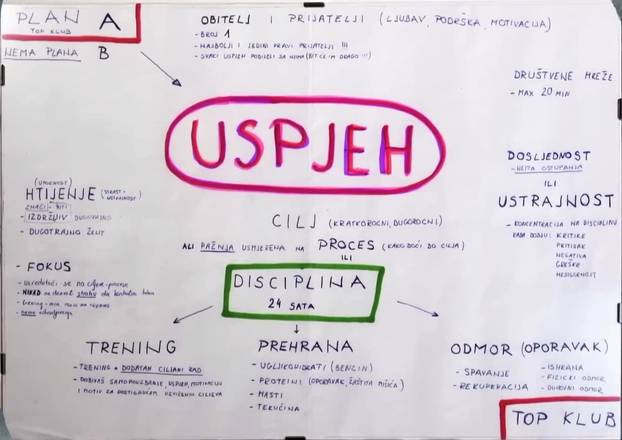 PLAN A
TOP KLUB
NEMA PLANA B
OBITELJ I PRIJATELJI (LJUBAV, PODRŠKA, MOTIVACIJA)
- BROJ 1
- NAJBOLJI I JEDINI PRAVI PRIJATELJI !!!
- SVAKI USPJEH PODIJELI SA NJIMA (BIT ĆE IM DRAGO !!!)
DRUŠTVENE MREŽE
- MAX 20 MIN
USPJEH
DOSLJEDNOST
- NEMA ODSTUPANJA
ILI
USTRAJNOST
- KONCENTRACIJA NA DISCIPLINU
KADA DOĐU: KRITIKE
PRITISAK
NEGATIVA
GREŠKE
NESIGURNOST
(UPORNOST)
HTIJENJE (STRAST +
USTRAJNOST)
ZNAČI - BITI
- IZDRŽLJIV DUGOTRAJNO
- DUGOTRAJNO ŽELIT
- FOKUS
CILJ (KRATKOROČNI, DUGOROČNI)
ALI PAŽNJA USMJERENA NA PROCES (KAKO DOĆI DO CILJA)
ILI
DISCIPLINA
24 SATA
TRENING
- TRENING + DODATAN CILJANI RAD
- DOBIVAŠ SAMOPOUZDANJE, USPJEH, MOTIVACIJU
I MOTIV ZA POSTIGNUĆEM ODREĐENIH CILJEVA
PREHRANA
- UGLJIKOHIDRATI (BENZIN)
- PROTEINI (OPORAVAK, ZAŠTITA MIŠIĆA)
- MASTI
- TEKUĆINA
ODMOR (OPORAVAK)
- SPAVANJE
- REKUPERACIJA
- ISHRANA
- FIZIČKI ODMOR
- DUHOVNI ODMOR
TOP KLUB